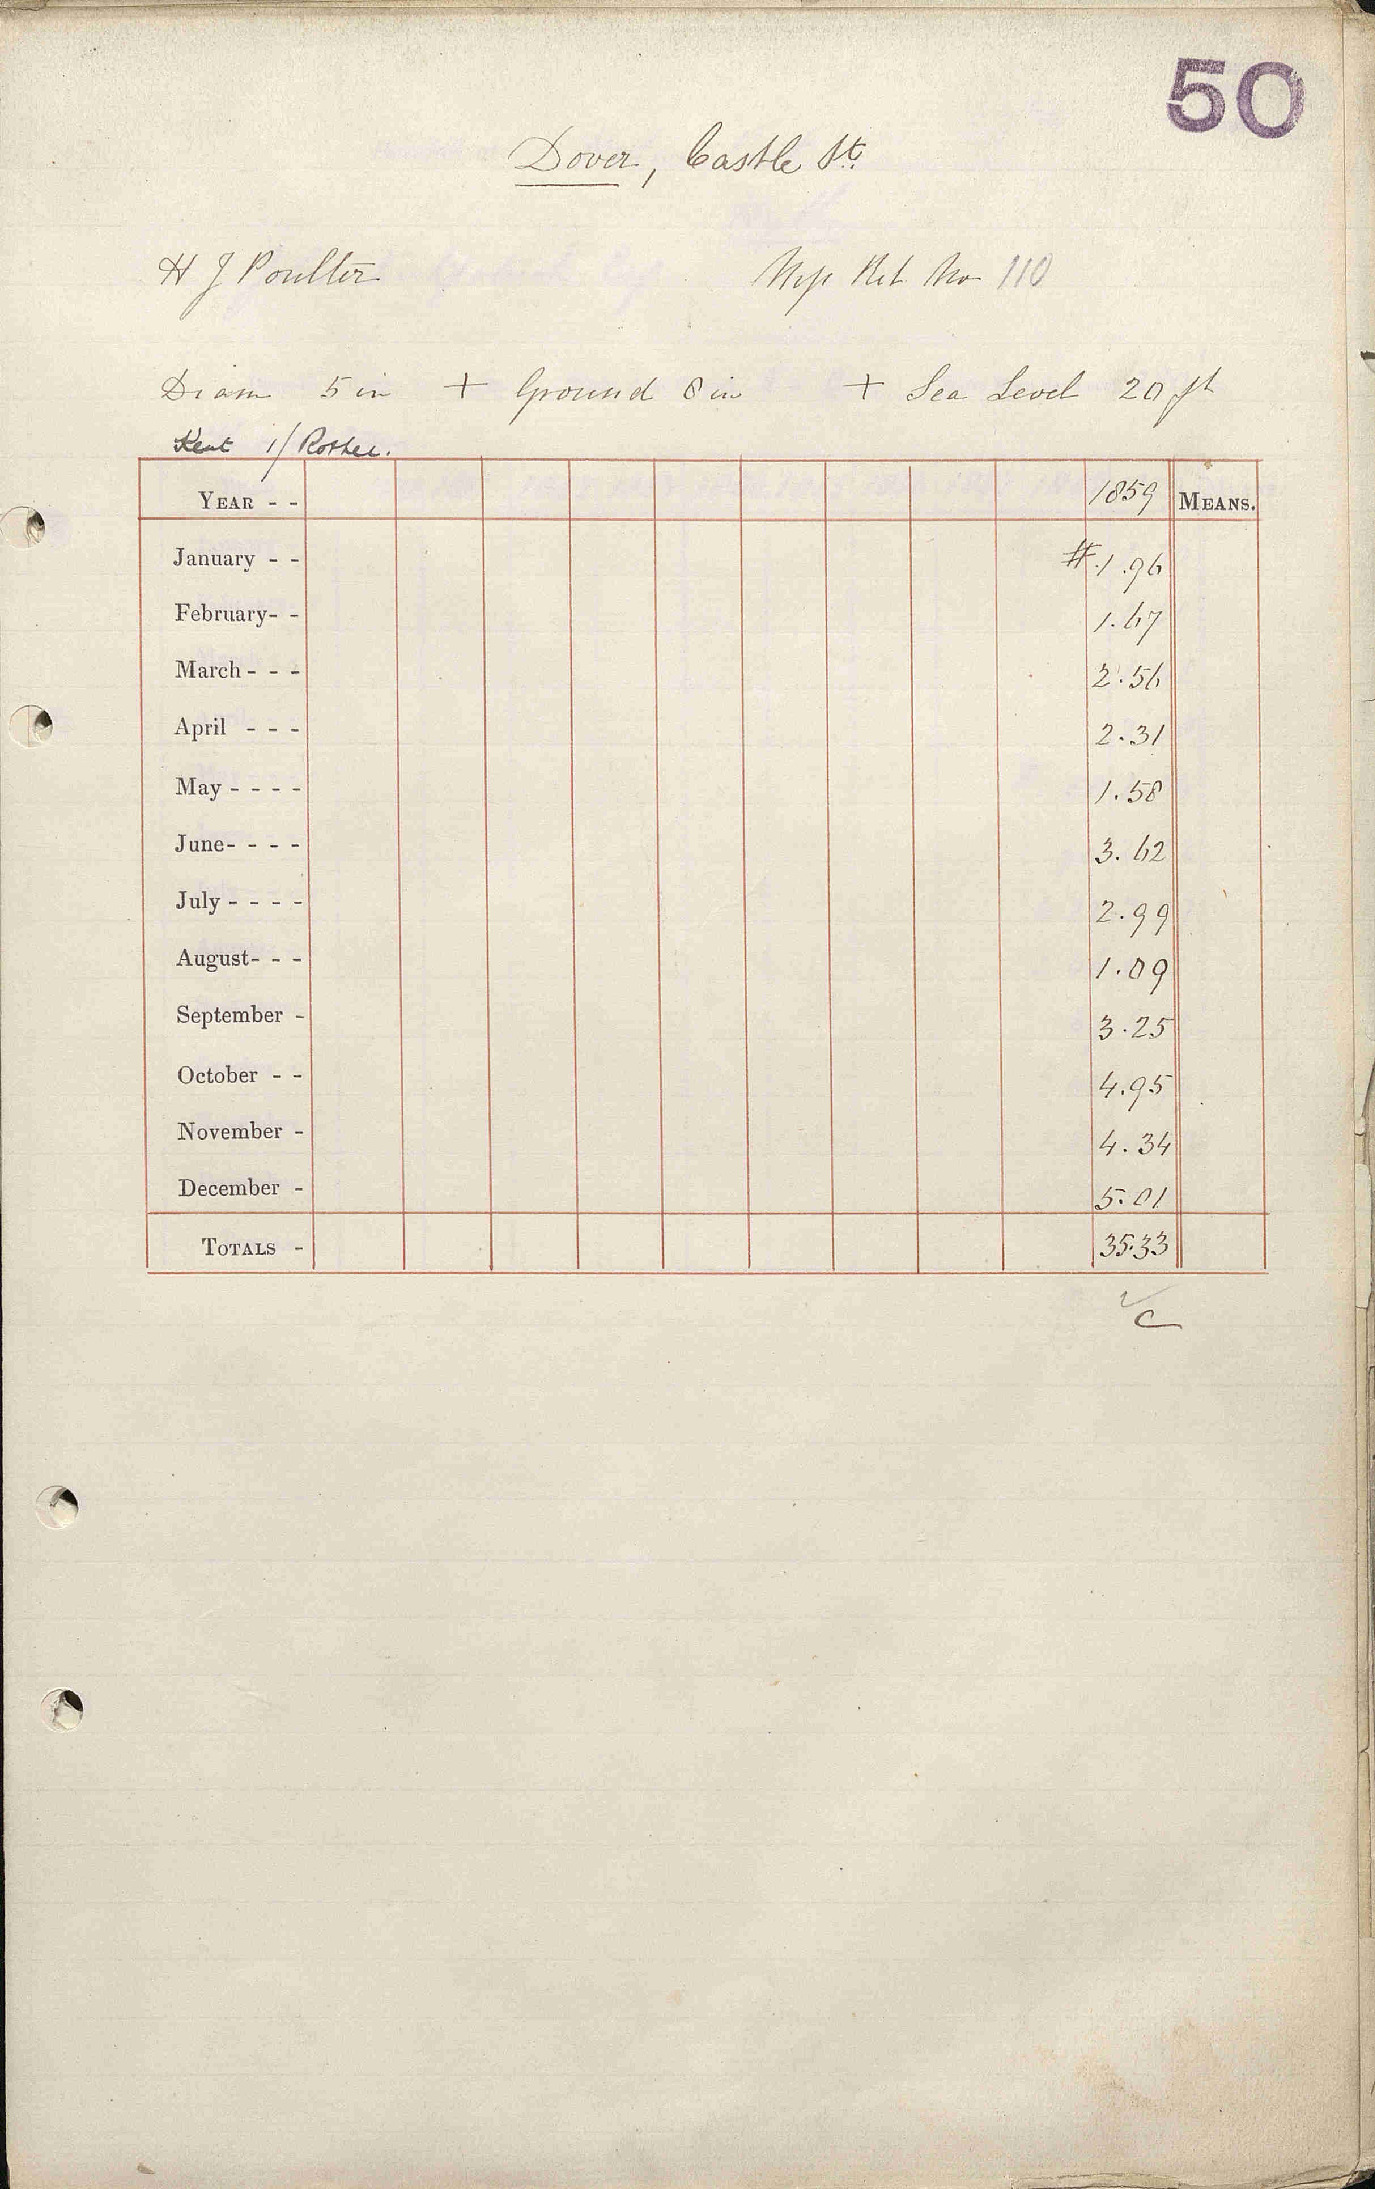 50
Dover, Castle St.
H J Poulter Map Ref No 110
Diam 5 in + Ground 8 in + Sea Level 20 ft
Kent 1/ Rother.
YEAR - - 1859 MEANS.
January - - #.1.96
February- - 1.67
March - - - 2.56
April - - - 2.31
May - - - - 1.58
June- - - - 3.62
July - - - - 2.99
August- - - 1.09
September - 3.25
October - - 4.95
November - 4.34
December - 5.01
TOTALS - 35.33
C